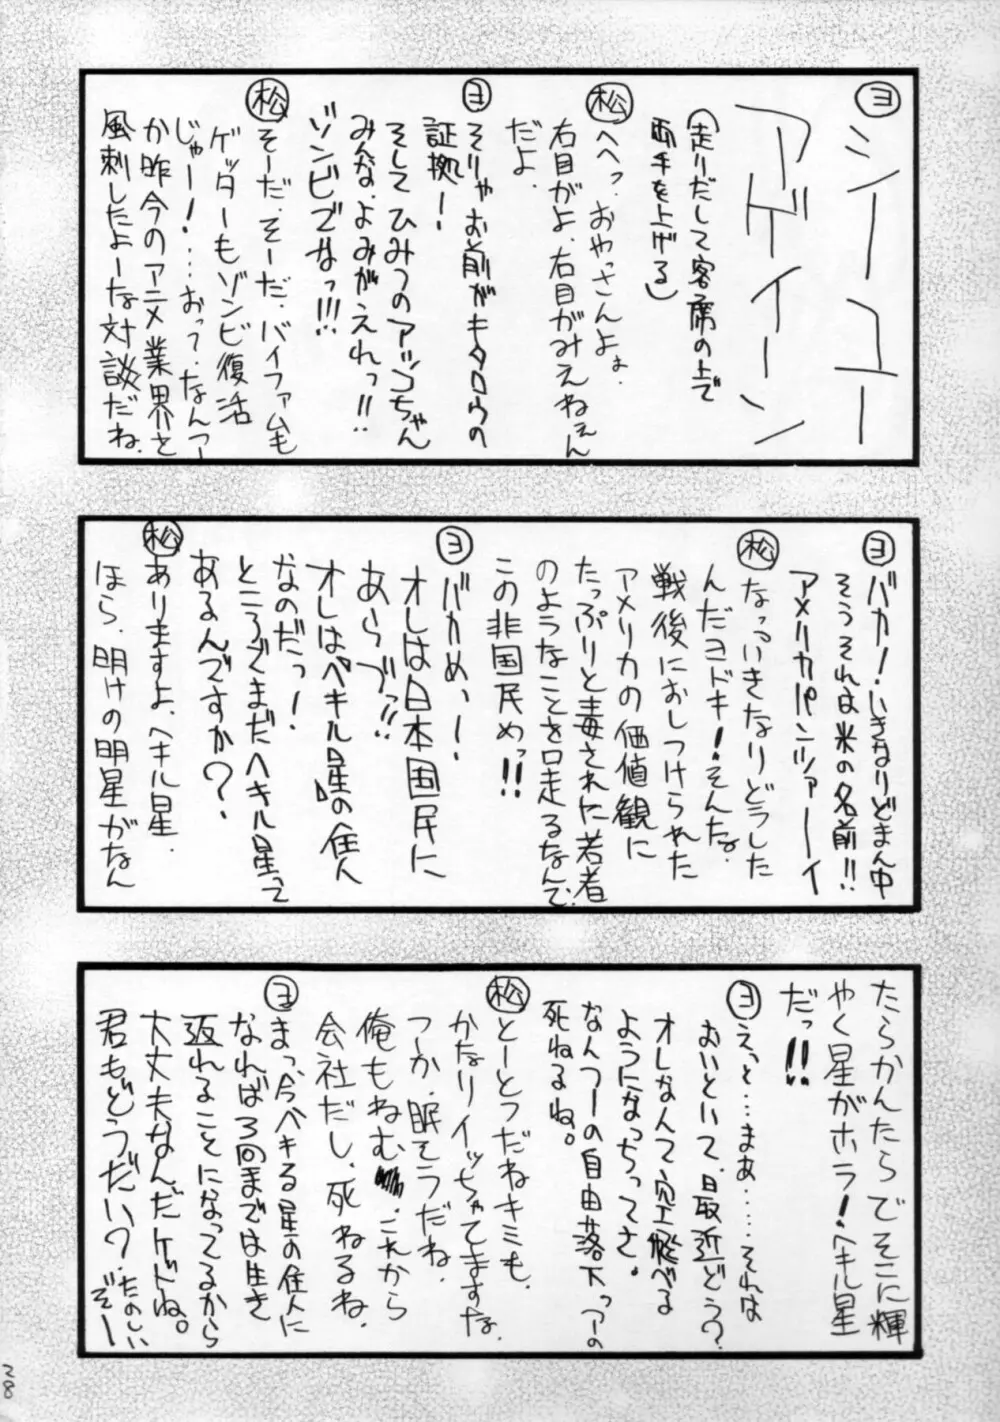 ヨ シーユー
アゲイーン
（走りだして客席の上で
両手を上げる）
松 へへっ、おやっさんよぉ、
右目がよ、右目がみえねぇん
だよ、
ヨ そりゃお前がキタロウの
証拠ー!
そしてひみつのアッコちゃん
みんな、よみがえれっ!!
ゾンビでなっ!!!
松 そーだ、そーだ、バイファムも
ゲッターもゾンビ復活
じゃー!…おって、なんつー
か昨今のアニメ業界を
風刺したよーな対談だね、
ヨ バカ!いきなりどまん中
そうそれは米の名前!!
アメリカパンツァーイ
松 なっ、いきなりどうした
んだヨドキ!そんな、
戦後におしつけられた
アメリカの価値観に
たっぷりと毒された若者
のようなことを口走るなんて、
この非国民めっ!!
ヨ バカめ、!
オレは日本国民に
あらづっ!!
オレはペキル星の住人
なのだっ!
ところでまだヘキル星って
あるんですか?
松 ありますよ、ヘキル星、
ほら、明けの明星がなん
たらかんたらでそこに輝
やく星がホラ!ヘキル星
だっ!!
ヨ えっと…まあ……それは
おいといて、最近どう?
オレなんて空飛べる
ようになっちってさ。
なんつーの自由落下っつーの
死ねるね。
松 とーとつだねキミも、
かなりイッちゃてますな、
つーか、眠そうだね、
俺もねむ 、これから
会社だし、死ねるね、
ヨ まっ、今ペキる星の住人に
なれば3回までは生き
返れることになってるから
大丈夫なんだケドね。
君もどうだい?、たのしい
ぞー
28